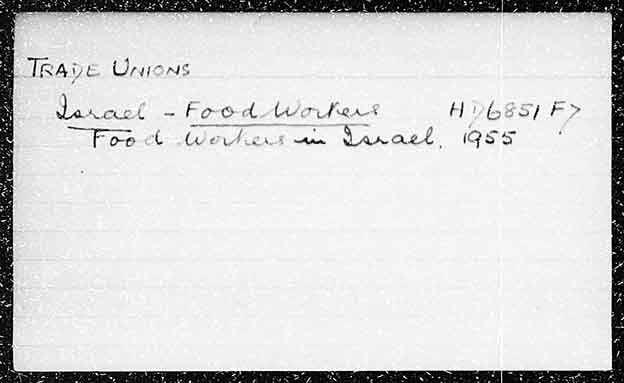 TRADE UNIONS
Israel - Food Workers HD6851 F7
Food Workers in Israel. 1955